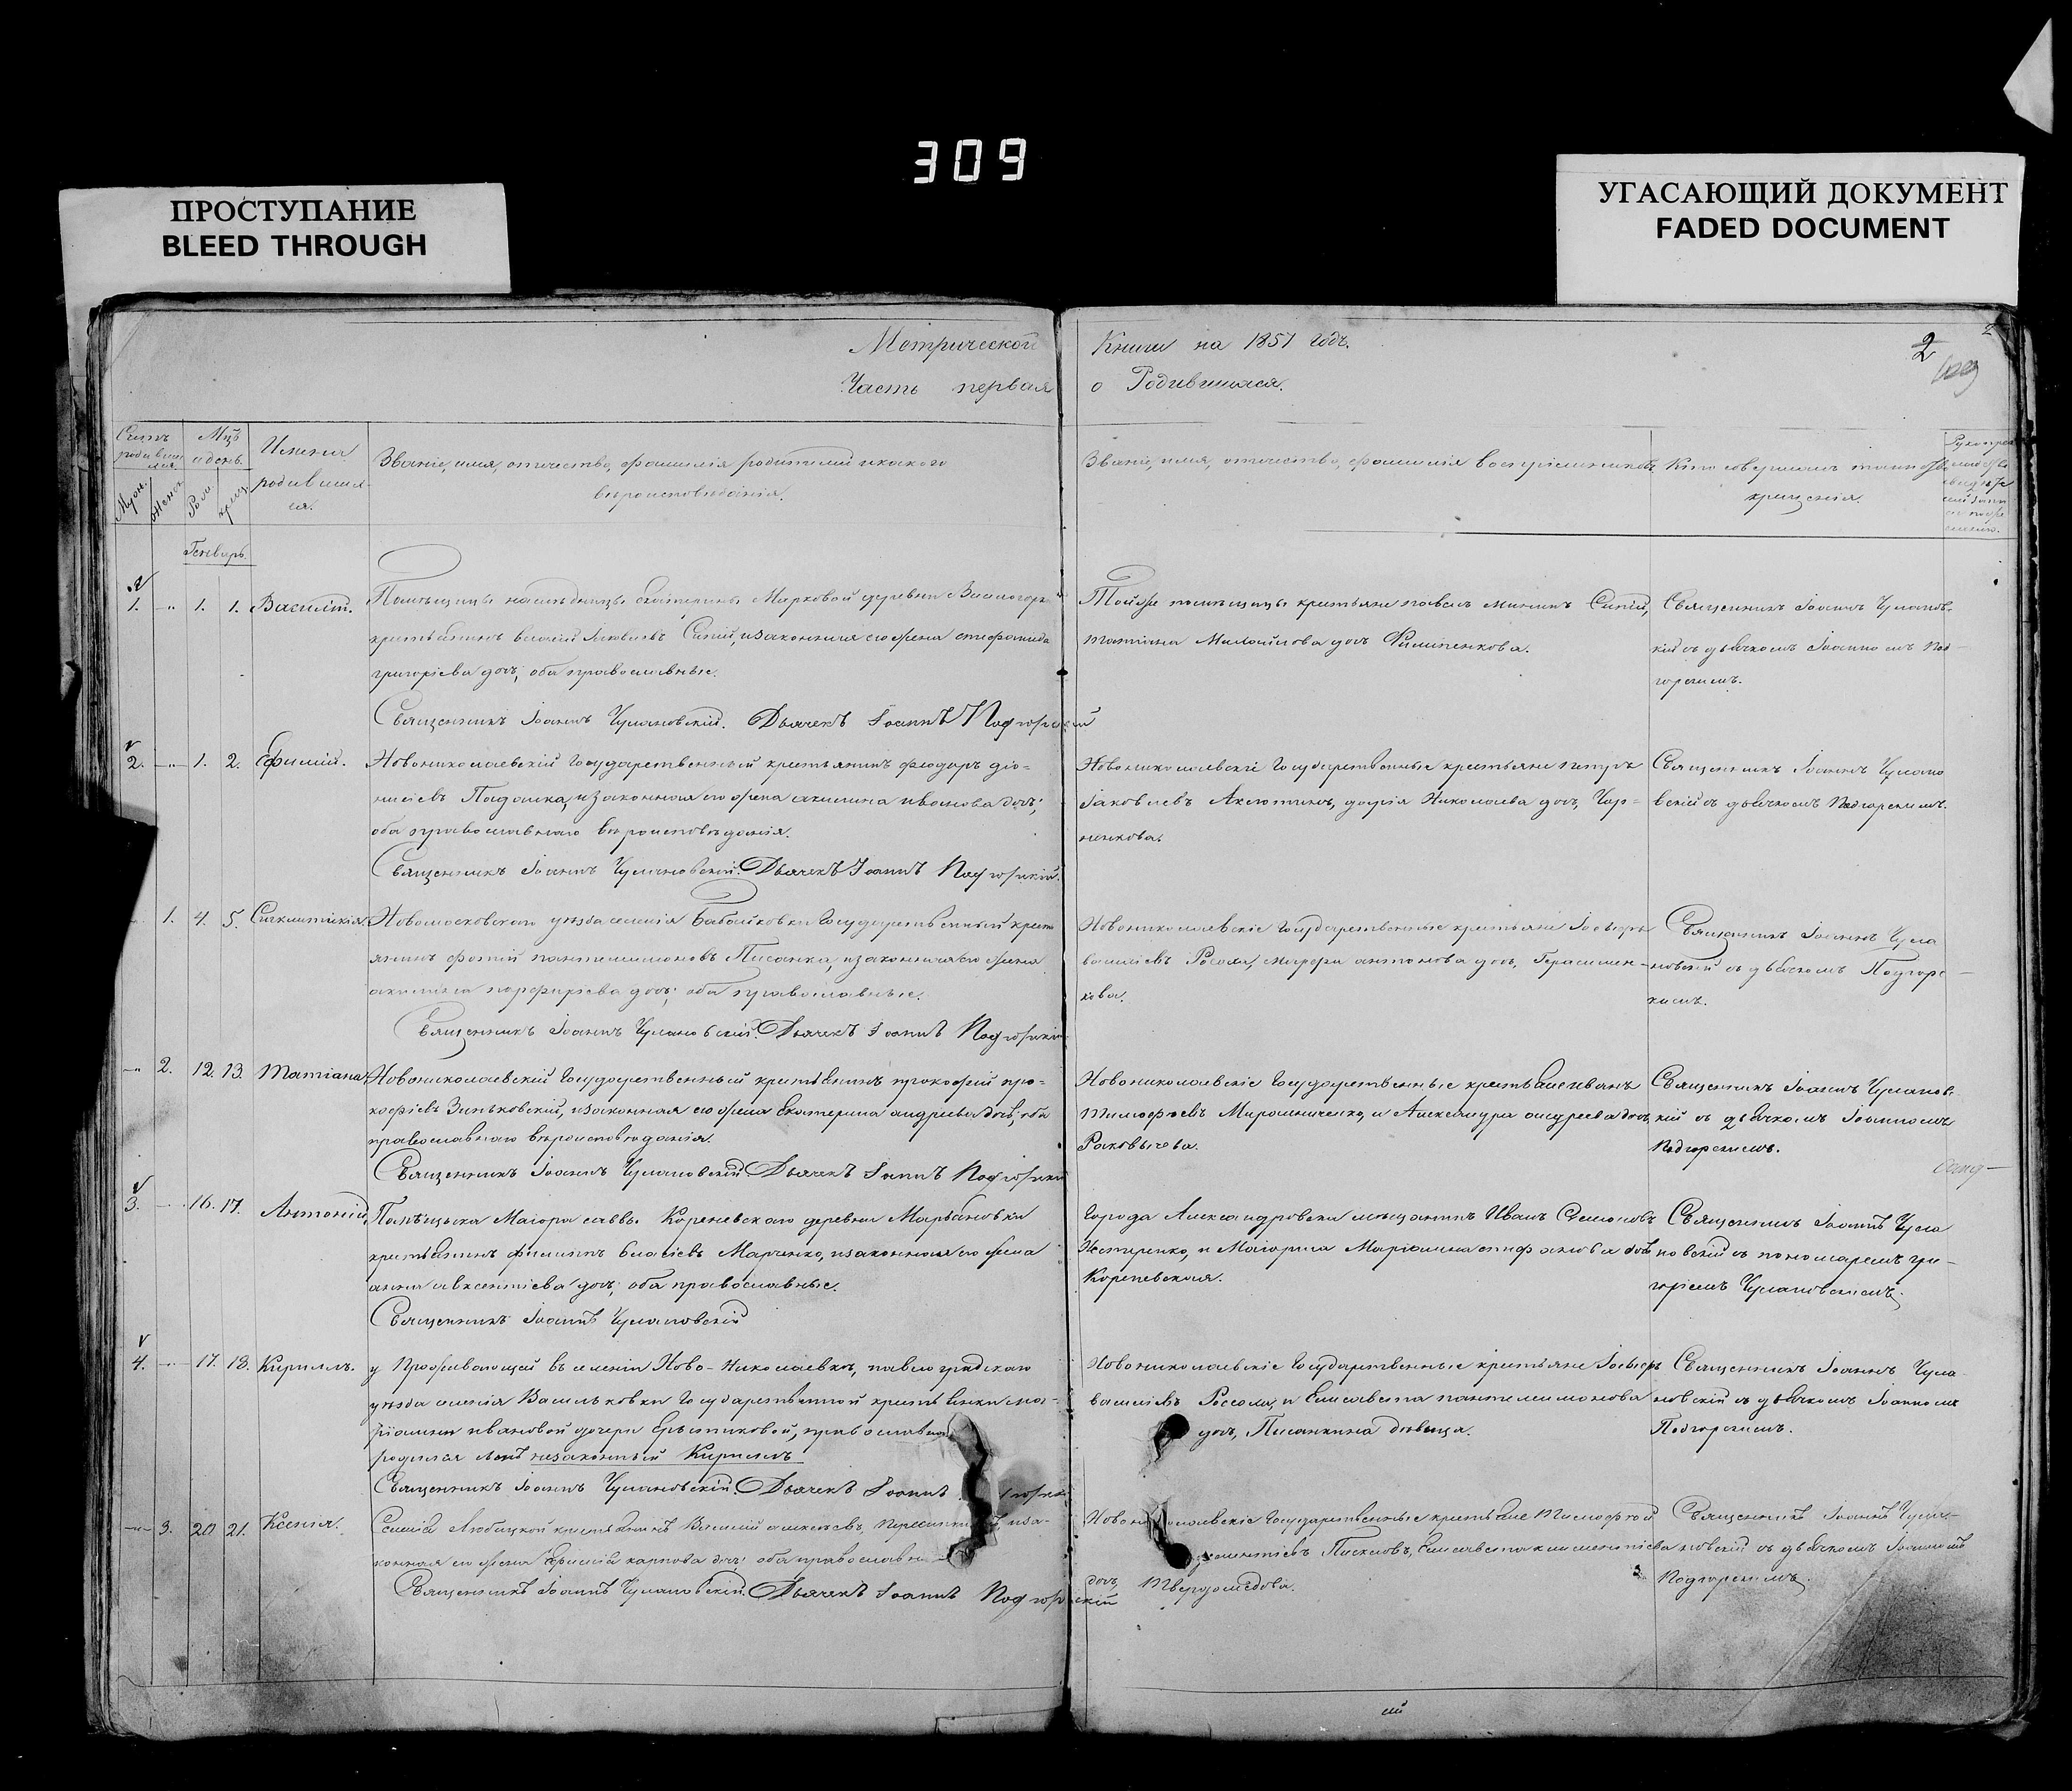 309
ПРОСТУПАНИЕ
BLEED THROUGH
УГАСАЮЩИЙ ДОКУМЕНТ
FADED DOCUMENT
Метрической Книги на 1851 годъ.
Часть первая о Родившихся.
2
Мцъ и день.
Имена родившихся.
Званіе, имя, отчество, фамилія родителей и какого
вѣроисповѣданія.
Званіе, имя, отчество, фамилія воспріемниковъ
Кто совершалъ таинство
крещенія.
Генварь.
1. 1. 1. Василій.
Помѣщицы наслѣдницы Екатерины Марковой деревни
крестьянинъ Василій Іаковлевъ Сипій, и законная его жена Стефанида
григоріева дочь; оба православные.
Священникъ Іоаннъ Чумановскій. Дьячекъ Іоаннъ Подгорскій
Той же помѣщицы крестьяне павелъ мининъ Сипій,
татіана Михайлова дочь Филипенкова.
Священникъ Іоаннъ Чуманов-
кій съ дьячкомъ Іоанномъ Под-
горскимъ.
2. 1. 2. Ефимій.
Новониколаевскій Государственный крестьянинъ феодоръ діо-
нисіевъ и законная его жена акилина иванова дочь;
оба православнаго вѣроисповѣданія.
Священникъ Іоаннъ Чумановскій. Дьячекъ Іоаннъ Подгорскій.
Новониколаевскіе Государственные крестьяне петръ
Іаковлевъ Аксютинъ, дарія Николаева дочь, Чор-
ненкова.
Священникъ Іоаннъ Чумано
вскій съ дьячкомъ Подгорскимъ.
1. 4. 5. Сигклитикія.
Новомосковскаго уѣзда селенія Бабайковки Государственный крест
янинъ фотій пантелиимоновъ Писанка, и законная его жена
акилина порфиріева дочь; оба православные.
Священникъ Іоаннъ Чумановскій. Дьячекъ Іоаннъ Подгорскій
Новониколаевскіе Государственные крестьяне Іосифъ
василіевъ марфа антонова дочь, Герасимен-
кова.
Священникъ Іоаннъ Чума
новскій съ дьячкомъ Подгорс
кимъ.
2. 12. 13. Татіана
Новониколаевскій Государственный крестьянинъ прокофій про-
кофіевъ Зиньковскій, и законная его жена Екатерина андреева дочь; оба
православнаго вѣроисповѣданія.
Священникъ Іоаннъ Чумановскій. Дьячекъ Іоаннъ Подгорскій
Новониколаевскіе Государственные крестьяне иванъ
Тимофѣевъ Мирошниченко, и Александра андреева дочь,
Раковичева.
Священникъ Іоаннъ Чумановс
кій съ дьячкомъ Іоанномъ
Подгорскимъ.
3. 16. 17. Антоній
Помѣщика Маіора саввы Кореневскаго деревни Марьяновки
крестьянинъ филиппъ власіевъ Марченко, и законная его жена
анна авксентіева дочь; оба православные.
Священникъ Іоаннъ Чумановскій
Города Александровска мѣщанинъ Иванъ Семеновъ
и Маіорша Маріамна стифанова дочь
Кореневская.
Священникъ Іоаннъ Чума
новскій съ пономаремъ гри-
горіемъ Чумановскимъ.
4. 17. 18. Кириллъ.
у Проживающей въ селеніи Ново-Николаевкѣ, павлоградскаго
уѣзда селенія Васильковки Государственной крестьянки ма-
ріамны ивановой дочери православной
родился незаконный Кириллъ
Священникъ Іоаннъ Чумановскій. Дьячекъ Іоаннъ
Новониколаевскіе Государственные крестьяне Іосифъ
василіевъ и Елисавета пантелеимонова
дочь, Писанкина дѣвица.
Священникъ Іоаннъ Чума
новскій съ дьячкомъ Іоанномъ
Подгорскимъ.
3. 20. 21. Ксенія.
Селенія Любицкой крестьянинъ Василій и за-
конная его жена Ефимія карпова дочь; оба православные
Священникъ Іоаннъ Чумановскій. Дьячекъ Іоаннъ Подгорскій
Новониколаевскіе Государственные крестьяне Тимофей
Елисавета климентіева
дочь, Твердохлѣбова.
Священникъ Іоаннъ Чума-
новскій съ дьячкомъ Іоанномъ
Подгорскимъ.